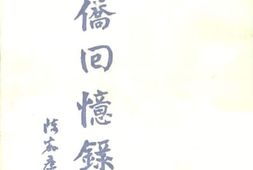 僑回憶錄
陳嘉庚